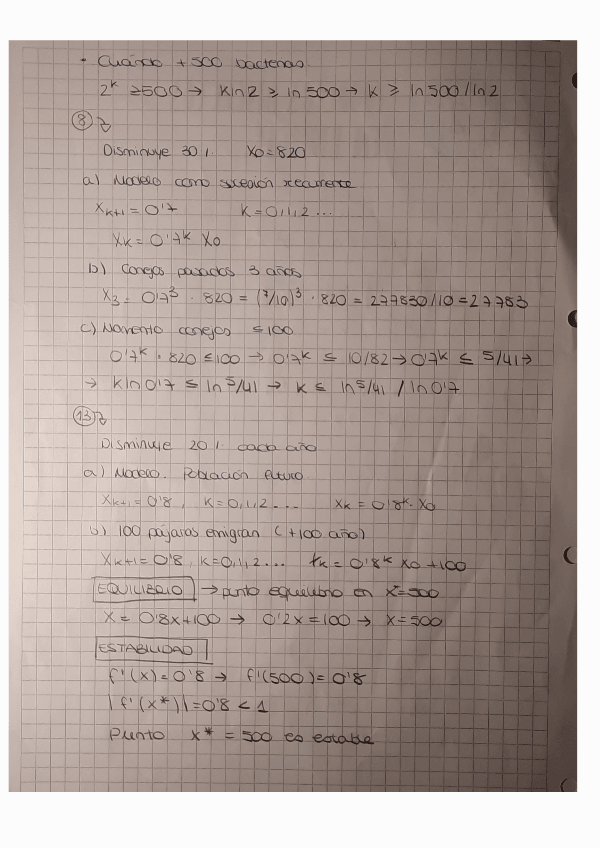 • Cuándo +500 bacterias
2^k ≥500 → kln2 ≥ ln500 → k ≥ ln500/ln2
⑧
Disminuye 30%. X0=820
a) Modelo como sucesión recurrente
X_{k+1} = 0'7 K=0,1,2...
X_k = 0'7^k X0
b) Conejos pasados 3 años
X_3 = 0'7^3 · 820 = (7/10)^3 · 820 = 277830/10 = 27783
c) Momento conejos ≤100
0'7^k · 820 ≤ 100 → 0'7^k ≤ 10/82 → 0'7^k ≤ 5/41 →
→ kln0'7 ≤ ln5/41 → k ≤ ln5/41 / ln0'7
⑬
Disminuye 20%. cada año
a) Modelo. Población futuro
X_{k+1} = 0'8, K=0,1,2... X_k = 0'8^k · X0
b) 100 pájaros emigran (+100 año)
X_{k+1} = 0'8, K=0,1,2... X_k = 0'8^k X0 +100
EQUILIBRIO → punto equilibrio en X*=500
X = 0'8x+100 → 0'2x=100 → X=500
ESTABILIDAD
f'(x) = 0'8 → f'(500) = 0'8
|f'(x*)| = 0'8 < 1
Punto x* = 500 es estable